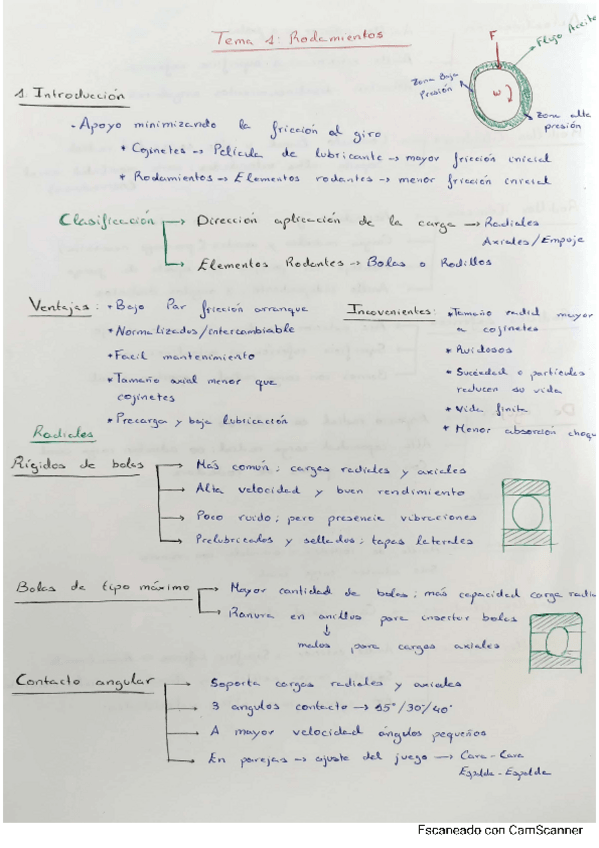 Tema 1: Rodamientos
F
Flujo Aceite
Zona Baja
Presión
ω
Zona alta
presión
1. Introducción
- Apoyo minimizando la fricción al giro
* Cojinetes → Película de lubricante → mayor fricción inicial
* Rodamientos → Elementos rodantes → menor fricción inicial
Clasificación → Dirección aplicación de la carga → Radiales
Axiales/Empoje
→ Elementos Rodantes → Bolas o Rodillos
Ventajas: * Bajo Par fricción arranque
* Normalizados/intercambiable
* Facil mantenimiento
* Tamaño axial menor que
cojinetes
* Precarga y baja lubricación
Incovenientes: * Tamaño radial mayor
a cojinetes
* Ruidosos
* Suciedad o partículas
reducen su vida
* Vida finita
* Menor absorción choqu
Radiales
Rígidos de bolas → Más común; cargas radiales y axiales
→ Alta velocidad y buen rendimiento
→ Poco ruido; pero presencia vibraciones
→ Prelubricados y sellados; tapas laterales
Bolas de tipo máximo → Mayor cantidad de bolas; más capacidad carga radia
→ Ranura en anillos para insertar bolas
↓
malos para cargas axiales
Contacto angular → Soporta cargas radiales y axiales
→ 3 angulos contacto → 15°/30°/40°
→ A mayor velocidad ángulos pequeños
→ En parejas → ajuste del juego → Cara - Cara
Espalda - Espalda
Escaneado con CamScanner